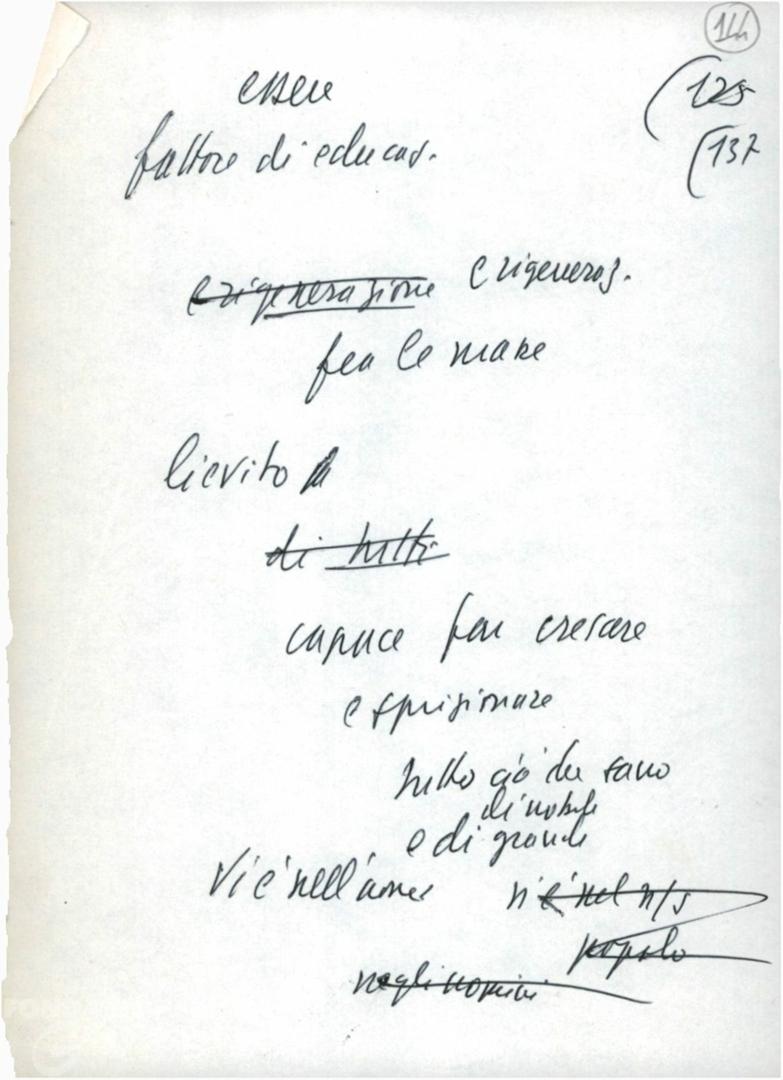 144
essere
(125
fattore di educaz.
(137
e rigenerazione e rigeneraz.
fra le masse
lievito
di tutti
capace far crescere
e sprigionare
tutto ciò che sano
di nobile
e di grande
Vi è nell'
vi è nel n/s
popolo
negli uomini